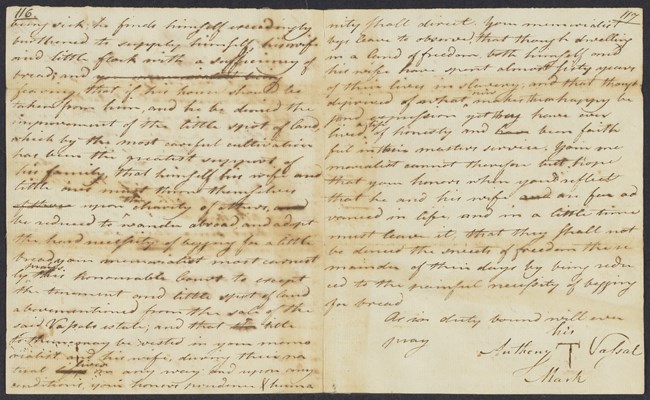 116.
being sick. he finds himself exceedingly
burthened to supply himself, his wife
and little flock with a sufficiency of
bread; and
fearing that if his house should be
taken from him, and he be denied the
improvement of the little spot of land
which by the most careful cultivation
has been the greatest support of
his family, that himself his wife and
little ones must throw themselves
upon the charity of others, and
be reduced to wander abroad and adopt
the hard necessity of begging for a little
bread, your memorialist most earnest
ly prays this Honourable Court to except
the tenement and little spot of land
abovementioned from the sale of the
said Vassals estate, and that title
to them may be vested in your memo
rialist and his wife, during their na
tural lives in any way and upon any
conditions, your honors prudence & huma
117
nity shall direct. Your memorialist
begs leave to observe, that though dwelling
in a land of freedom, both himself and
his wife have spent almost sixty years
of their lives in slavery, and that though
deprived of what makes them now happy be
yond expression yet they have ever
lived a life of honesty and have been faith
ful in their masters service. Your me
morialist cannot therefore but hope
that your honors when you reflect
that he and his wife are far ad
vanced in life, and in a little time
must leave it, that they shall not
be denied the sweets of freedom the re
mainder of their days by being redu
ced to the painful necessity of begging
for bread
As in duty bound will ever
pray
his
Anthony T Vassal
Mark